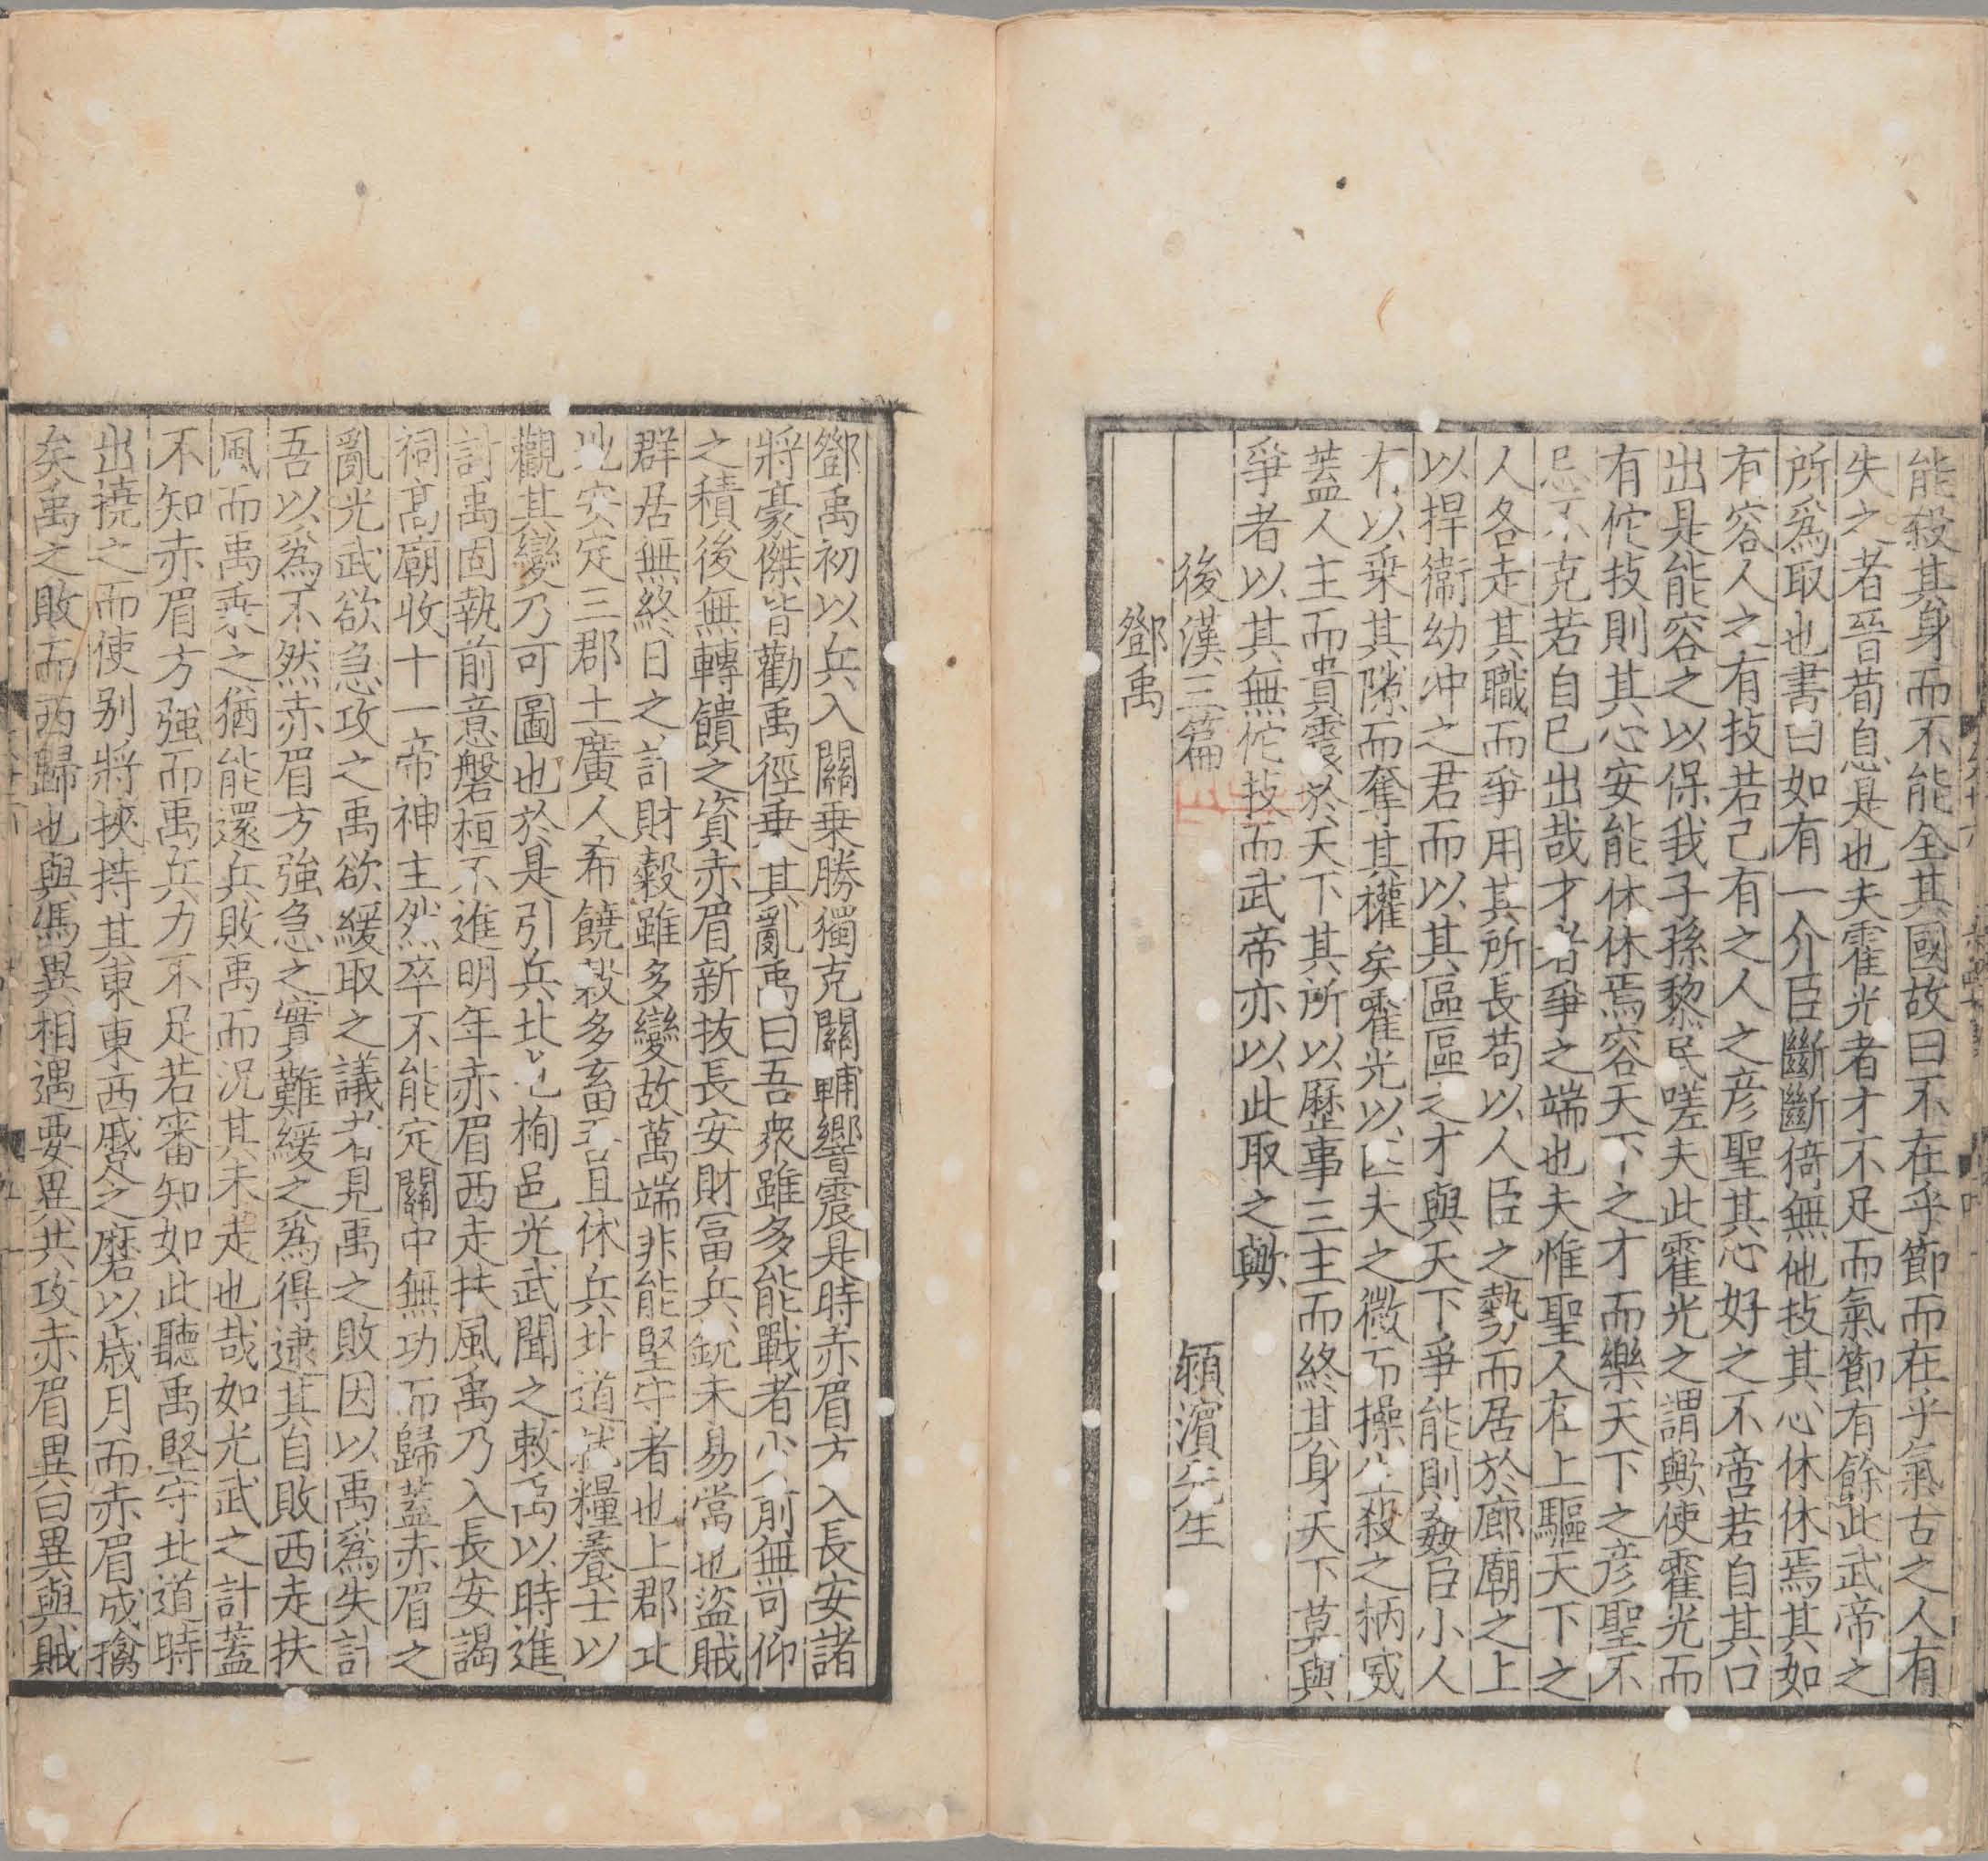 能殺其身而不能全其國故曰不在乎節而在乎氣古之人有
失之者晉荀息是也夫霍光者才不足而氣節有餘此武帝之
所爲取也書曰如有一介臣斷斷猗無他技其心休休焉其如
有容人之有技若己有之人之彦聖其心好之不啻若自其口
出是能容之以保我子孫黎民嗟夫此霍光之謂歟使霍光而
有佗技則其心安能休休焉容天下之才而樂天下之彦聖不
忌不克若自已出哉才者爭之端也夫惟聖人在上驅天下之
人各走其職而爭用其所長苟以人臣之勢而居於廊廟之上
以捍衞幼冲之君而以其區區之才與天下爭能則姦臣小人
有以乗其隙而奪其權矣霍光以匹夫之微而操生殺之柄威
蓋人主而貴震於天下其所以歷事三主而終其身天下莫與
爭者以其無佗技而武帝亦以此取之歟
後漢三篇 潁濱先生
鄧禹
鄧禹初以兵入關乗勝獨克關輔響震是時赤眉方入長安諸
將豪傑皆勸禹徑乗其亂禹曰吾衆雖多能戰者少前無可仰
之積後無轉饋之資赤眉新拔長安財富兵銳未易當也盜賊
群居無終日之計財穀雖多變故萬端非能堅守者也上郡北
地安定三郡土廣人希饒穀多畜吾且休兵北道就糧養士以
觀其變乃可圖也於是引兵北屯栒邑光武聞之敕禹以時進
討禹固執前意磐桓不進明年赤眉西走扶風禹乃入長安謁
祠高廟收十一帝神主然卒不能定關中無功而歸蓋赤眉之
亂光武欲急攻之禹欲緩取之議者見禹之敗因以禹爲失計
吾以爲不然赤眉方強急之實難緩之爲得逮其自敗西走扶
風而禹乗之猶能還兵敗禹而況其未走也哉如光武之計蓋
不知赤眉方強而禹兵力不足若審知如此聽禹堅守北道時
出撓之而使别將挾持其東東西蹙之磨以歲月而赤眉成擒
矣禹之敗而西歸也與馮異相遇要異共攻赤眉異曰異與賊